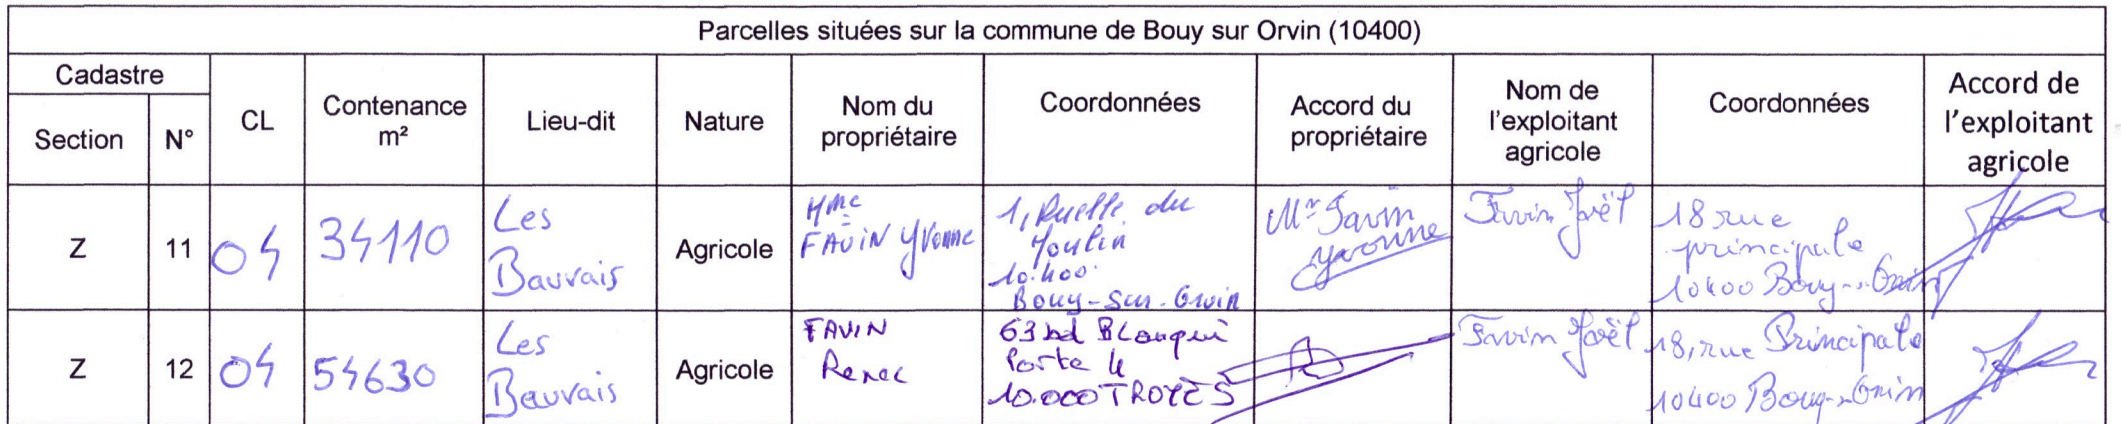 Parcelles situées sur la commune de Bouy sur Orvin (10400)
Cadastre
Section
N°
CL
Contenance
m²
Lieu-dit
Nature
Nom du
propriétaire
Coordonnées
Accord du
propriétaire
Nom de
l'exploitant
agricole
Coordonnées
Accord de
l'exploitant
agricole
Z
11
04
34110
Les
Bauvais
Agricole
Mme
FAVIN Yvonne
1, Ruelle du
Moulin
10.400.
Bouy-sur-Orvin
Mme Favin
Yvonne
Favin Joël
18 rue
principale
10400 Bouy-s-Orvin
Z
12
04
54630
Les
Bauvais
Agricole
FAVIN
René
63 bd Blanqui
Porte 4
10.000 TROYES
Favin Joël
18, rue Principale
10400 Bouy-s-Orvin